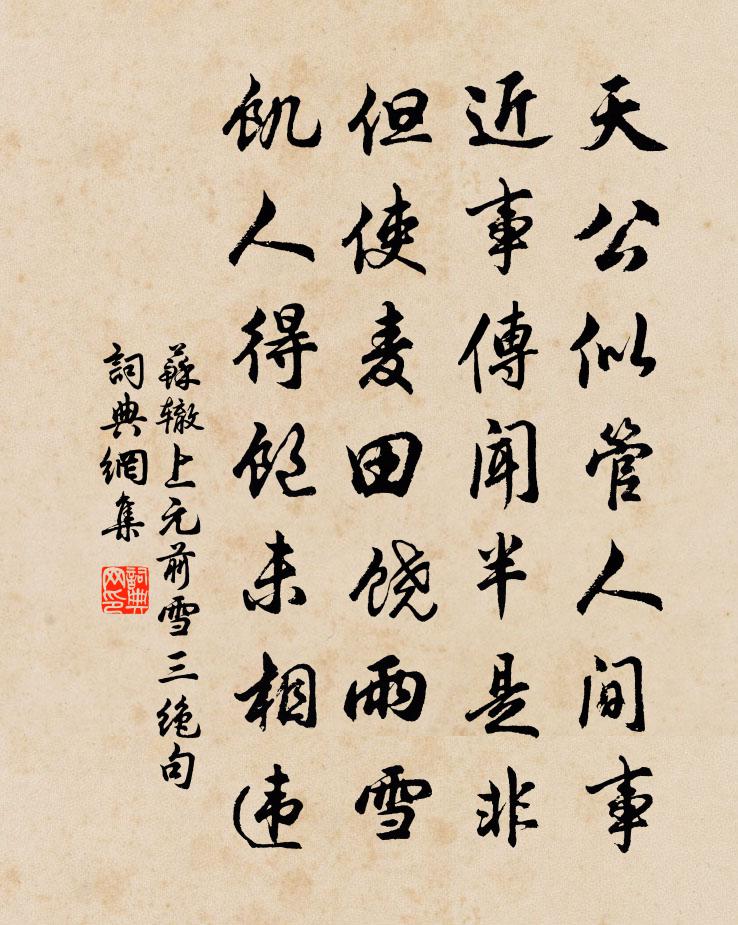 天公似管人间事
近事傳闻半是非
但使麦田饶雨雪
飢人得飽未相违
蘇辙上元前雪三绝句
詞典網集
詞典网印